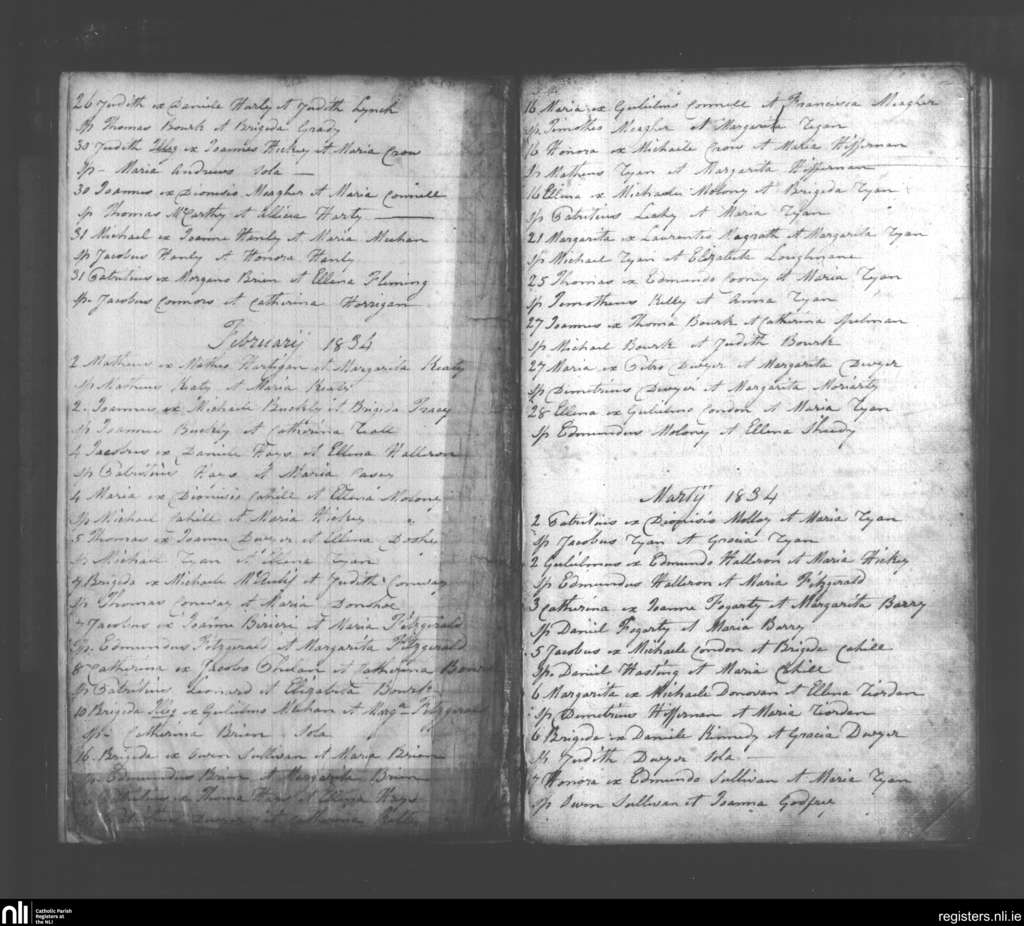 26 Judith ex Daniele Harty et Judith Lynch
Sp Thomas Bourk et Brigida Grady
30 Judith Illeg ex Joannes Hickey et Maria Crow
Sp - Maria Andrews Sola
30 Joannes ex Dionisio Meagher et Maria Connell
Sp Thomas McCarthy et Harty
31 Michael ex Joanne Hanly et Maria Meehan
Sp Jacobus Hanly et Honora Hanly
31 Patritius ex Morgano Brien et Ellena Fleming
Sp Jacobus Connors et Catherina Horrigan
Februarij 1834
2 Matheus ex Matheo Hartigan et Margarita Keaty
Sp Matheus Keaty et Maria Keaty
2 Joannes ex Michaele Buckly et Brigida Tracy
Sp Joannes Buckly et Catherina
4 Jacobus ex Daniele Hays et Ellena Halleron
Sp Patritius Hays et Maria Casey
4 Maria ex Dionisio Cahill et Ellena Molony
Sp Michael Cahill et Maria Hickey
5 Thomas ex Joanne Dwyer et Ellena
Sp Michael Tyan et Ellena Tyan
7 Brigida ex Michaele et Judith Conway
Sp Thomas Conway et Maria Donohoe
7 Jacobus ex Joanne et Maria Fitzgirald
Sp. Edmundus Fitzgirald et Margarita Fitzgirald
8 Catherina ex Jacobo et Catherina
Sp Patritius Leonard et Elizabeta Bourk
10 Brigida Illeg ex Gulielmo Meehan et Marga Fitzgirald
Sp - Catherina Brien Sola
16 Brigida ex Owen Sullivan et Maria Brien
Sp. Edmundus Brien et Margarita Brien
ex Thoma Hays et Ellena Hays
Dwyer et Catherina
16 Maria ex Gulielmo Connell et Francisca Meagher
Sp Timotheo Meagher et Margarita Tyan
16 Honora ex Michaele Crow et Maria Hiffernan
Sp Matheus Tyan et Margarita Hiffernan
16 Ellena ex Michaele Molony et Brigida Tyan
Sp Patritius Leahy et Maria Tyan
21 Margarita ex Laurentio Magrath et Margarita Tyan
Sp Michael Tyan et Elizabeth Loughnane
25 Thomas ex Edmundo Cooney et Maria Tyan
Sp Timotheus Kelly et Anna Tyan
27 Joannes ex Thoma Bourk et Catherina Spelman
Sp Michael Bourk et Judith Bourk
27 Maria ex Petro Dwyer et Margarita Dwyer
Sp Demetrius Dwyer et Margarita Moriarty
28 Ellena ex Gulielmo Condon et Maria Tyan
Sp Edmundus Molony et Ellena Sheedy
Martij 1834
2 Patritius ex Dionisio Molloy et Maria Tyan
Sp Jacobus Tyan et Gracia Tyan
2 Gulielmus ex Edmundo Halleron et Maria Hickey
Sp Edmundus Halleron et Maria Fitzgirald
3 Catherina ex Joanne Fogarty et Margarita Barry
Sp Daniel Fogarty et Maria Barry
5 Jacobus ex Michaele Condon et Brigida Cahill
Sp Daniel Hasting et Maria Cahill
6 Margarita ex Michaele Donovan et Ellena Riordan
Sp Demetrius Hiffernan et Maria Riordan
6 Brigida ex Daniele Kinnedy et Gracia Dwyer
Sp Judith Dwyer Sola
7 Honora ex Edmundo Sullivan et Maria Tyan
Sp Owen Sullivan et Joanna Godfrey
nli
Catholic Parish
Registers at
the NLI
registers.nli.ie